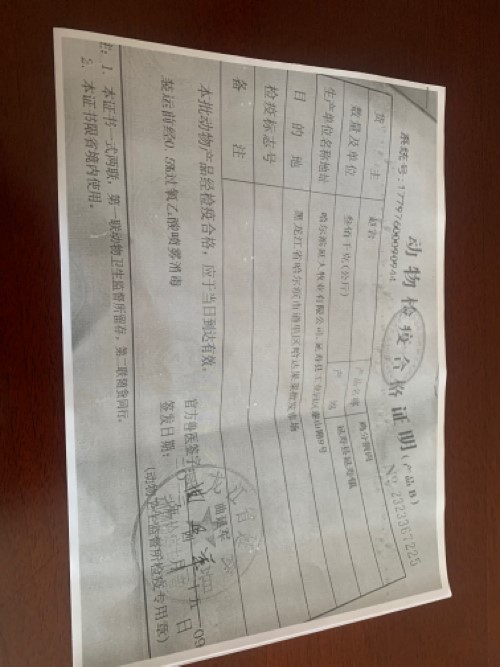 动物检疫合格证明(产品B)
系统号:17797600090944
No 2323367225
货 主
产品名称
数量及单位 叁佰千克(公斤)
产 地 延寿县延寿镇
生产单位名称地址
目 的 地 黑龙江省哈尔滨市道里区哈达果菜批发市场
检疫标志号
备 注
本批动物产品经检疫合格,应于当日到达有效。
装运前经0.5%过氧乙酸喷雾消毒
官方兽医签字:
签发日期:
(动物卫生监督所检疫专用章)
注:1. 本证书一式两联,第一联动物卫生监督所留存,第二联随货同行。
2. 本证书限省境内使用。